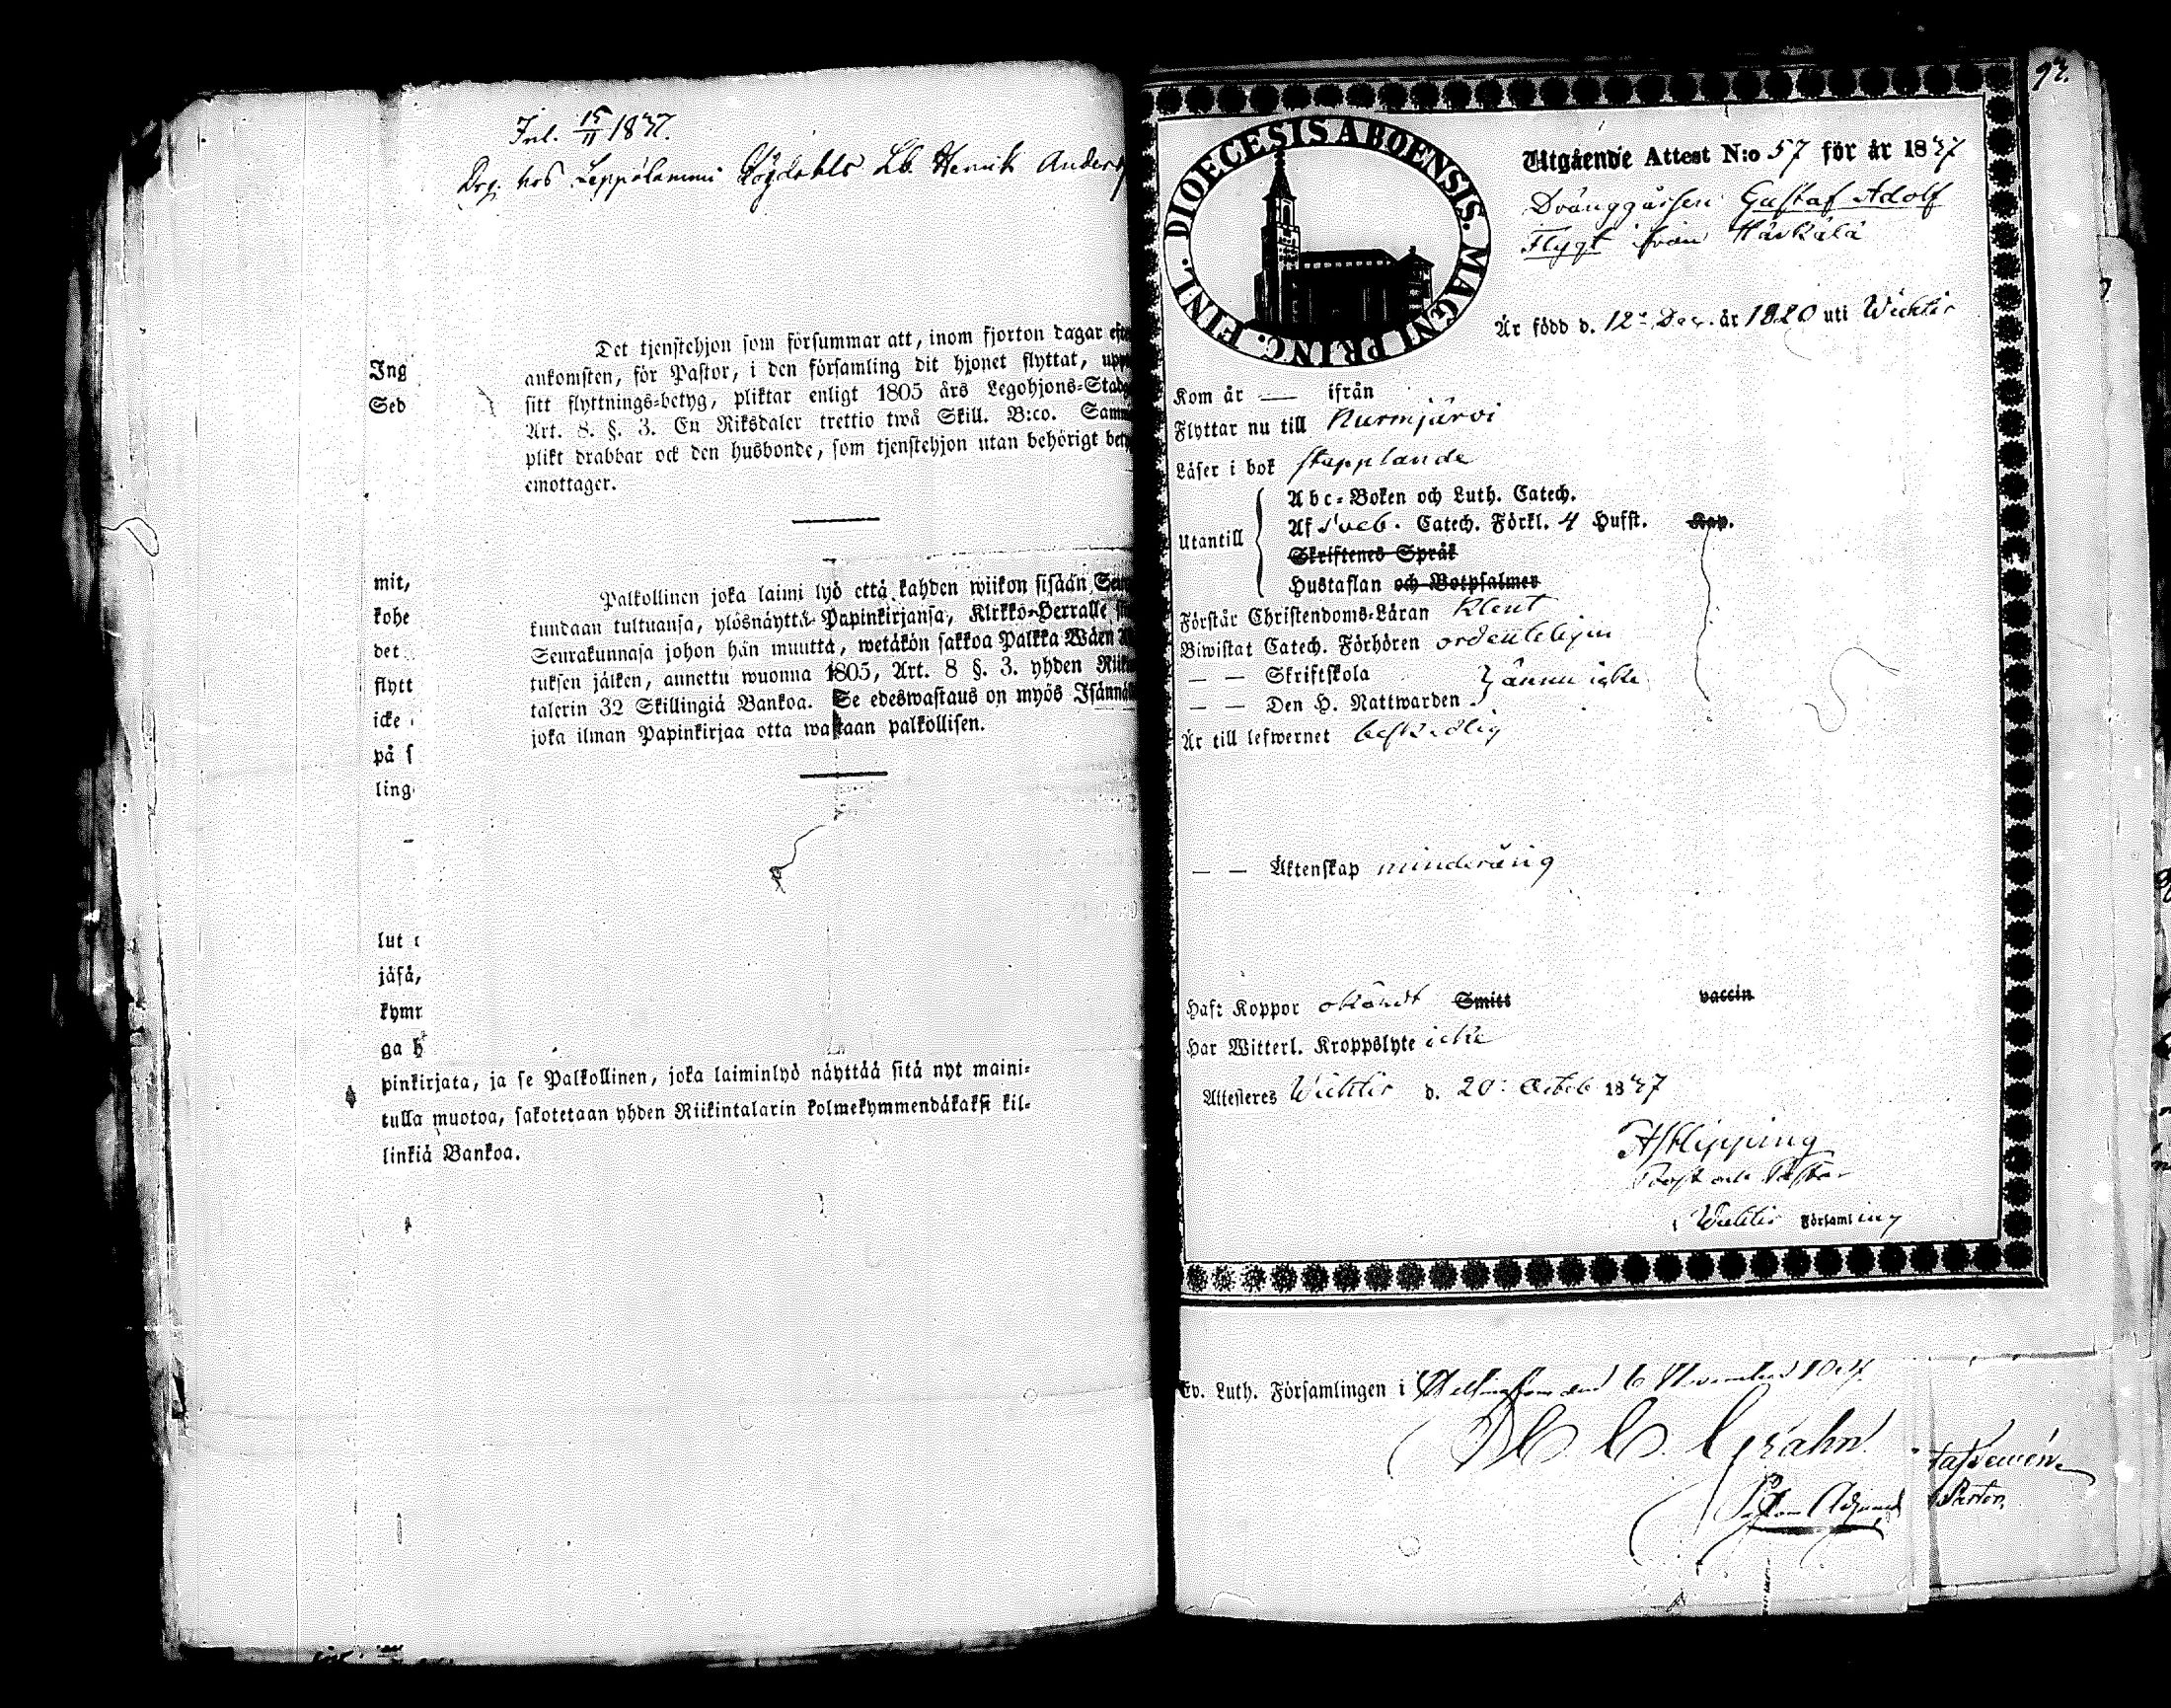 Inl. 15/11 1837.
Drg. hos Leppälammi Lb. Henrik Anders
Det tjenstehjon som försummar att, inom fjorton dagar efte
ankomsten, för Pastor, i den församling dit hjonet flyttat, upp
sitt flyttnings-betyg, pliktar enligt 1805 års Legohjons-Stadg
Art. 8. §. 3. En Riksdaler trettio två Skill. B:co. Samm
plikt drabbar ock den husbonde, som tjenstehjon utan behörigt bety
emottager.
Palkollinen joka laimi lyö että kahden wiikon sisään Seu
kundaan tultuansa, ylösnäyttä Papinkirjansa, Kirkko-Herralle
Seurakunnasa johon hän muutta, wetäkön sakkoa Palkka Wäen
tuksen jälken, annettu wuonna 1805, Art. 8 §. 3. yhden Riik
talerin 32 Skillingiä Bankoa. Se edeswastaus on myös Isännäl
joka ilman Papinkirjaa otta wastaan palkollisen.
Ing
Sed
mit,
kohe
det
flytt
icke
på s
ling
lut
jäså,
kymr
ga h
pinkirjata, ja se Palkollinen, joka laiminlyö näyttää sitä nyt maini-
tulla muotoa, sakotetaan yhden Riikintalarin kolmekymmendäkaksi kil-
linkiä Bankoa.
93.
DIOECESIS ABOENSIS. MAGNI PRINC. FINL.
Utgående Attest N:o 57 för år 1837
Dränggåssen Gustaf Adolf
Flygt från Härkälä
Är född d. 12 Dec. år 1820 uti Wichtis
Kom år — ifrån
Flyttar nu till Nurmijärvi
Läser i bok stapplande
Utantill
Abc-Boken och Luth. Catech.
Af Sveb. Catech. Förkl. 4 Hufst. Kap.
Skriftenes Språk
Hustaflan och Botpsalmer
Förstår Christendoms-Läran klent
Biwistat Catech. Förhören ordenteligen
— — Skriftskola
ännu icke
— — Den H. Nattwarden
Är till lefwernet beskedlig
— — Äktenskap minderårig
Haft Koppor okändt Smitt vaccin
Har Witterl. Kroppslyte icke
Attesteres Wichtis d. 20 Octob 1837
Hipping
Prost och Pastor
Wichtis Församling
Ev. Luth. Församlingen i Helsingfors den 6 November 1837.
Grahn
Pastor.